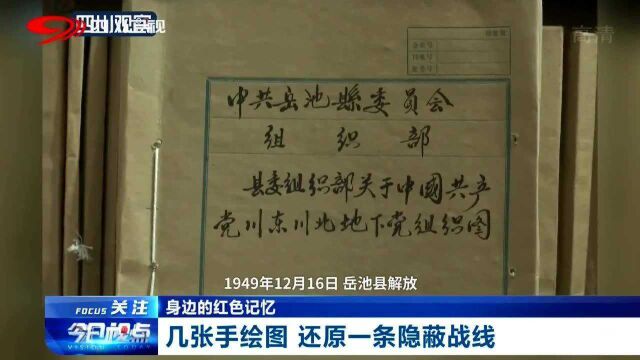 四川观察
高清
中共岳池縣委员会
组织部
县委组织部关于中國共产
党川东川北地下党组织图
1949年12月16日 岳池县解放
FOCUS 关注
身边的红色记忆
今日视点
VISION TODAY
几张手绘图 还原一条隐蔽战线